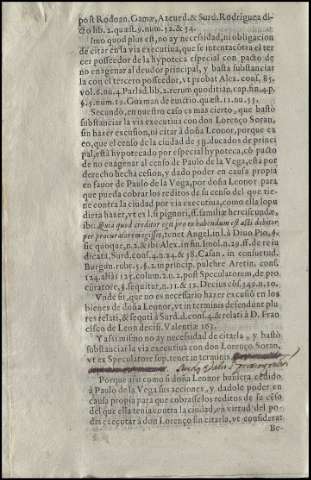 post Rodoan. Gamæ, Azeurd. & Surd. Rodriguez di-
cto lib. 2. quæst. 9. num. 52. & 54.
Imo quod plus est, no ay necesidad, ni obligacion
de citar en la via executiva, que se intenta contra el ter
cer possedor de la hypoteca especial con pacto de
no enagenar al deudor principal, y basta substanciar
la con el tercero possedor, vt probat Alex. cons. 85.
vol. 6. nu. 4. Parlad. lib. 2. rerum quotidian. cap. fin. 4. p.
§. 5. num. 12. Guzman de euictio. quæst. 11. nu. 53.
Segundo, en nuestro caso es mas cierto, que bastò
substanciar la via executiva con don Lorenço Soran,
sin hazer excusion, ni citar à doña Leonor, porque ex
eo, que el censo de la ciudad de 38. ducados de princi
pal, està hypotecado por especial hypoteca, cõ pacto
de no enagenar al censo de Paulo de la Vega, està por
derecho hecha cesion, y dado poder en causa propia
en favor de Paulo de la Vega, por doña Leonor para
que pueda cobrar los reditos de su censo del que tie-
ne contra la ciudad por via executiva, como ella lo pu
diera hazer, vt ex l. si pignori, ff. familiæ herciscundæ,
ibi: Quia quod creditor egit pro eo habendum est ac si debitor
per procuratorem egisset, tenet Angel. in l. à Diuo Pio, §.
sic quoque, n. 2. & ibi Alex. in fin. Imol. n. 29. ff. de re iu
dicata, Surd. cons. 42. n. 24. & 38. Casan. in consuetud.
Burgun. rubr. 5. §. 2. in princip. pulchre Aretin. cons.
124. aliàs 125. colum. 2. n. 2. post Speculatorem, de pro
curatore, §. sequitur, n. 11. & 12. Decius cons. 349. n. 10.
Vnde fit, que no es necessario hazer excusiõ en los
bienes de doña Leonor, vt in terminis defendunt plu
res relati, & sequuti à Surd. d. cons. 4. & relati à D. Fran
cisco de Leon decis. Valentiæ 163.
Y assi mismo no ay necesidad de citarla, y bastò
substanciar la via executiva con don Lorenço Soran,
vt ex Speculatore sup. tenet in terminis
Porque assi como si doña Leonor huuiera cedido
à Paulo de la Vega sus acciones, y dadole poder en
causa propia para que cobrasse los reditos de su censo
del que ella tenia contra la ciudad, en virtud del po-
der executar à don Lorenço sin citarla, vt considerat
Be-